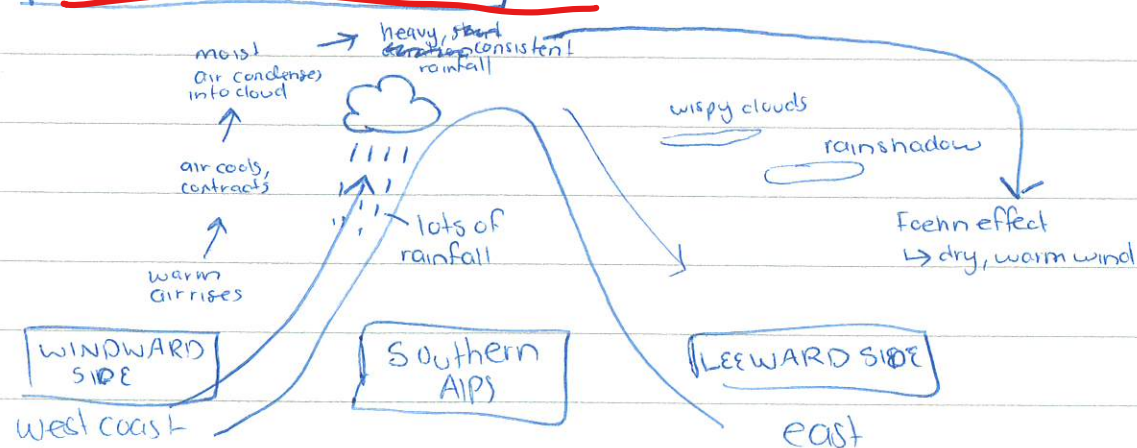 moist
air condenses
into cloud
heavy,
consistent
rainfall
air cools,
contracts
warm
air rises
lots of
rainfall
wispy clouds
rainshadow
Foehn effect
↳ dry, warm wind
WINDWARD
SIDE
Southern
AlPS
LEEWARD SIDE
west coast
east